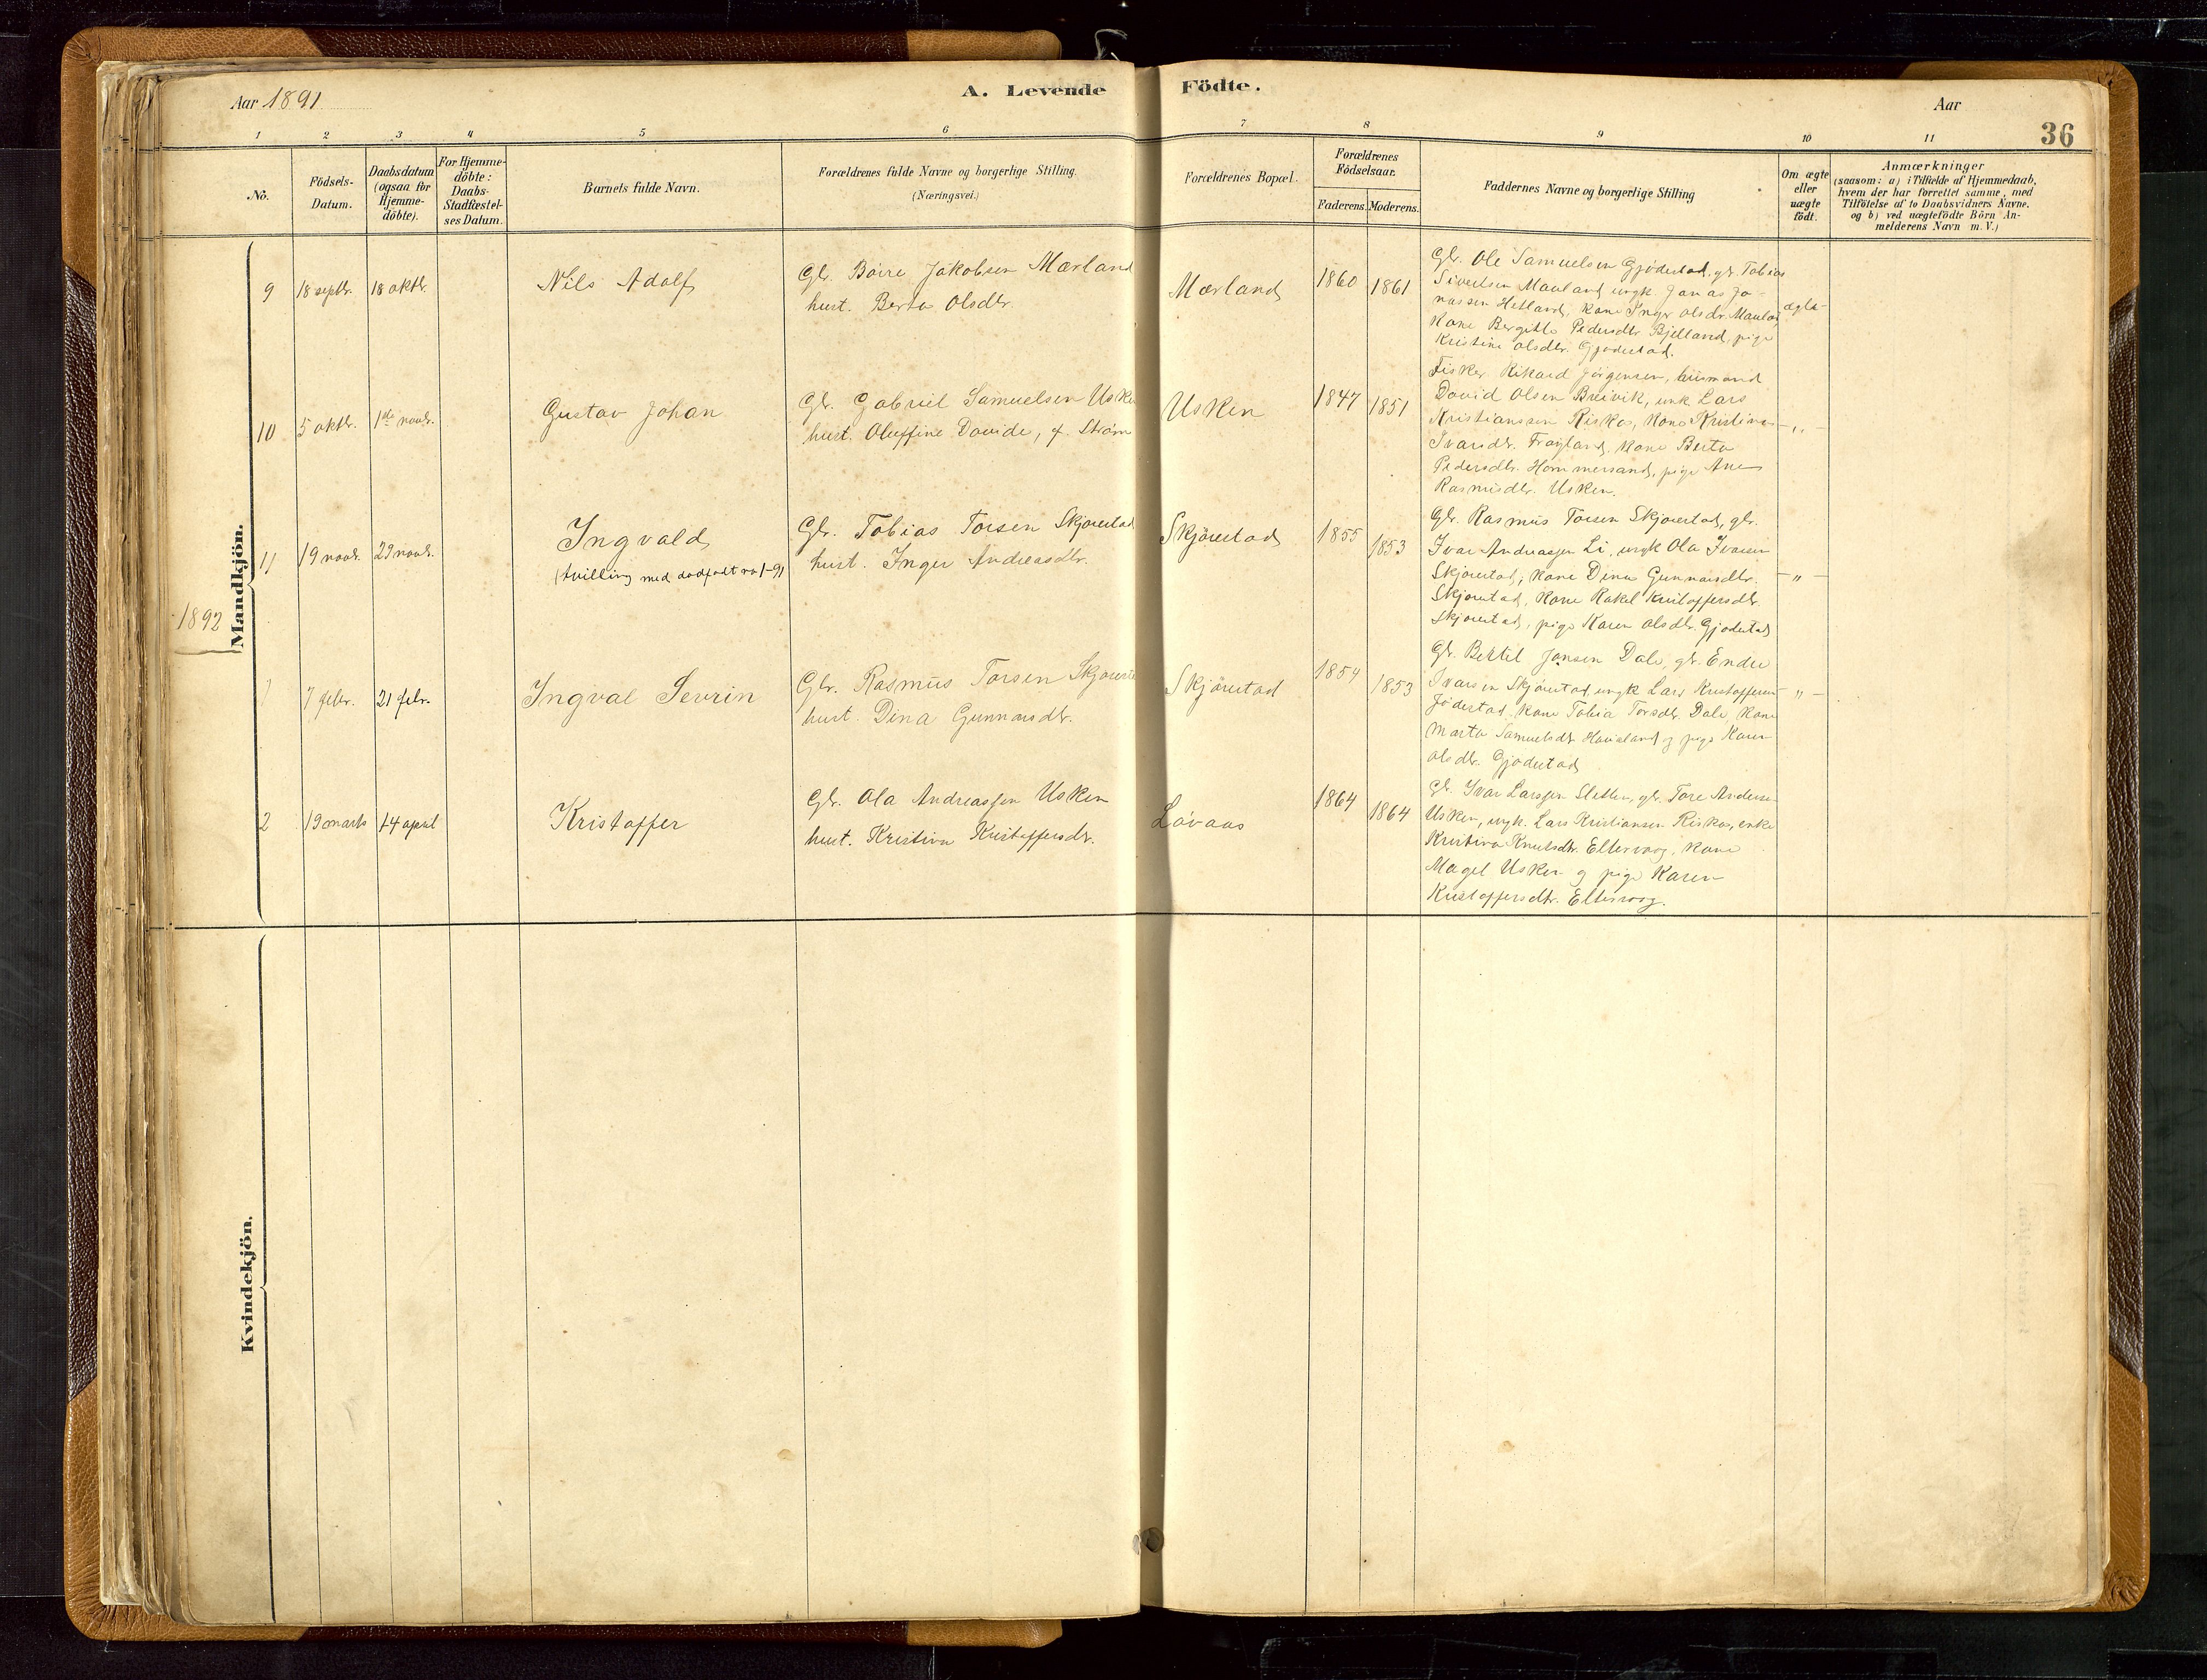 Aar 1891
A. Levende Födte.
Aar
36
1 2 3 4 5 6 7 8 9 10 11
No.
Födsels-
Datum.
Daabsdatum
(ogsaa for
Hjemme-
döbte).
For Hjemme-
döbte:
Daabs-
Stadfæstel-
ses Datum.
Barnets fulde Navn.
Forældrenes fulde Navne og borgerlige Stilling.
(Næringsvei.)
Forældrenes Bopæl.
Forældrenes
Födselsaar.
Faderens. Moderens.
Faddernes Navne og borgerlige Stilling
Om ægte
eller
uægte
födt.
Anmærkninger
(saasom: a) i Tilfælde af Hjemmedaab,
hvem der har forrettet samme, med
Tilföielse af to Daabsvidners Navne.
og b) ved uægtefödte Börn An-
melderens Navn m. V.)
Mandkjön.
9
18 septbr.
18 oktbr.
Nils Adolf
Gbr. Boire Jakobsen Mærland
hust. Berta Olsdtr.
Mærland
1860
1861
Gbr. Ole Samuelsen Gjödestad, gbr. Tobias
Sivertsen Mauland, ungk. Jonas Jo-
nassen Hetland, kone Inger Olsdtr. Mauland,
Kone Bergitte Pedersdtr. Bjelland, pige
Kristine Olsdtr. Gjödestad.
ægte
10
5 oktbr.
1ste novbr.
Gustav Johan
Gbr. Gabriel Samuelsen Usken
hust. Oluffine Davide, f. Ström
Usken
1847
1851
Fisker Rikard Jörgensen, husmand
David Olsen Breivik, unk. Lars
Kristianssen Riska, Kone Kristine
Ivarsdtr. Frøyland, Kone Berta
Pedersdtr. Hommersand, pige Ane
Rasmusdtr. Usken.
- „ -
11
19 novbr.
29 novbr.
Ingvald
(tvilling med dødfødt no 1-91
Gbr. Tobias Torsen Skjørestad
hust. Inger Andreasdtr.
Skjörestad
1855
1853
Gbr. Rasmus Torsen Skjørestad, gbr.
Ivar Andreassen Li, ungk. Ola Ivarsen
Skjørestad, Kone Dina Gunnarsdtr.
Skjørestad, Kone Rakel Kristoffersdtr.
Skjørestad, pige Karen Olsdtr. Gjødestad
- „ -
1892
1
7 febr.
21 febr.
Ingval Sevrin
Gbr. Rasmus Torsen Skjørest
hust. Dina Gunnarsdtr.
Skjörestad
1854
1853
Gbr. Bertil Jonsen Dale, gbr. Endre
Ivarsen Skjørestad, ungk. Lars Kristoffersen
Jödestad, Kone Tobia Torsdtr. Dale, Kone
Marta Samuelsdtr. Haualand og pige Karen
Olsdtr. Gjødestad
„ -
2
19 marts
14 april
Kristoffer
Gbr. Ola Andreassen Usken
hust. Kristine Kristoffersdtr.
Lövaas
1864
1864
Gbr. Ivar Larssen Sletten, gbr. Tore Andersen
Usken, ungk. Lars Kristiansen Riska, enke
Kristina Knutsdtr. Eltervaag, Kone
Magel Usken og pige Karen
Kristoffersdtr. Eltervaag.
Kvindekjön.